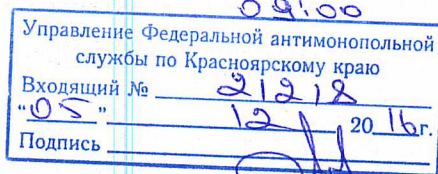 09:00
Управление Федеральной антимонопольной
службы по Красноярскому краю
Входящий № 21218
"05" 12 2016г.
Подпись